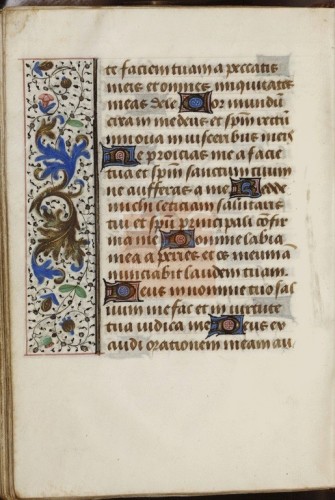 te faciem tuam a peccatis
meis et omnes iniquitates
meas dele Cor mundum
crea in me deus et spm rectu
innova in visceribus meis
Ne proicias me a facie
tua et spm sanctum tuum
ne aufferas a me Redde
michi leticiam salutaris
tui et spu principali confir
ma me Domine labia
mea aperies et os meum an
nunciabit laudem tuam.
Deus in nomine tuo sal
vum me fac et in virtute
tua iudica me Deus ex
audi orationem meam au